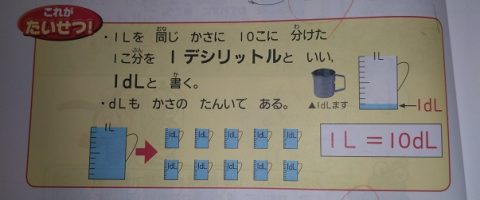 これが
たいせつ!
・1Lを 同じ かさに 10こに 分けた
1こ分を 1デシリットルと いい,
1dLと 書く。
・dLも かさの たんいで ある。
おな
わ
ぶん
か
1L
▲1dLます
←1dL
1L
1dL 1dL 1dL 1dL 1dL
1dL 1dL 1dL 1dL 1dL
1L=10dL